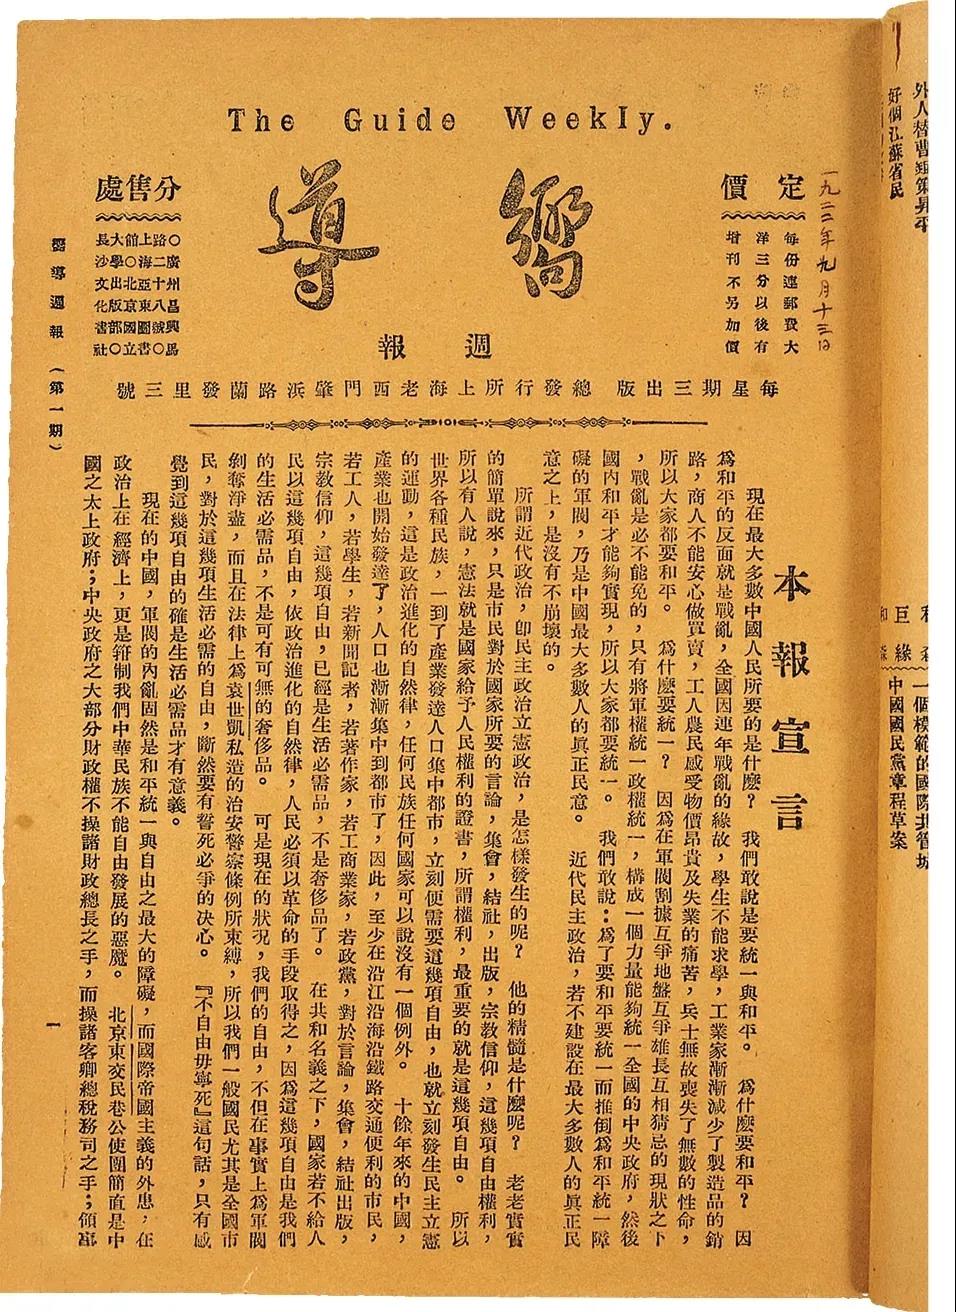 The Guide Weekly.
嚮導
週報
定價
每份連郵費大
洋三分以後有
增刊不另加價
一九二二年九月十三日
分售處
○廣州昌興馬
路二十八號○
上海亞東圖書
館○北京國立
大學出版部○
長沙文化書社
每星期三出版 總發行所上海老西門肇浜路蘭發里三號
嚮導週報（第一期）
本報宣言
現在最大多數中國人民所要的是什麽？ 我們敢說是要統一與和平。 爲什麽要和平？ 因
爲和平的反面就是戰亂，全國因連年戰亂的緣故，學生不能求學，工業家漸漸減少了製造品的銷
路，商人不能安心做買賣，工人農民感受物價昂貴及失業的痛苦，兵士無故喪失了無數的性命，
所以大家都要和平。 爲什麽要統一？ 因爲在軍閥割據互爭地盤互爭雄長互相猜忌的現狀之下
，戰亂是必不能免的，只有將軍權統一政權統一，構成一個力量能夠統一全國的中央政府，然後
國內和平才能夠實現，所以大家都要統一。 我們敢說：爲了要和平要統一而推倒爲和平統一障
礙的軍閥，乃是中國最大多數人的眞正民意。 近代民主政治，若不建設在最大多數人的眞正民
意之上，是沒有不崩壞的。
所謂近代政治，卽民主政治立憲政治，是怎樣發生的呢？ 他的精髓是什麽呢？ 老老實實
的簡單說來，只是市民對於國家所要的言論，集會，結社，出版，宗教信仰，這幾項自由權利，
所以有人說，憲法就是國家給予人民權利的證書，所謂權利，最重要的就是這幾項自由。 所以
世界各種民族，一到了產業發達人口集中都市，立刻便需要這幾項自由，也就立刻發生民主立憲
的運動，這是政治進化的自然律，任何民族任何國家可以說沒有一個例外。 十餘年來的中國，
產業也開始發達了，人口也漸漸集中到都市了，因此，至少在沿江沿海沿鐵路交通便利的市民，
若工人，若學生，若新聞記者，若著作家，若工商業家，若政黨，對於言論，集會，結社出版，
宗教信仰，這幾項自由，已經是生活必需品，不是奢侈品了。 在共和名義之下，國家若不給人
民以這幾項自由，依政治進化的自然律，人民必須以革命的手段取得之，因爲這幾項自由是我們
的生活必需品，不是可有可無的奢侈品。 可是現在的狀況，我們的自由，不但在事實上爲軍閥
剝奪淨盡，而且在法律上爲袁世凱私造的治安警察條例所束縛，所以我們一般國民尤其是全國市
民，對於這幾項生活必需的自由，斷然要有誓死必爭的決心。 『不自由毋寧死』這句話，只有感
覺到這幾項自由的確是生活必需品才有意義。
現在的中國，軍閥的內亂固然是和平統一與自由之最大的障礙，而國際帝國主義的外患，在
政治上在經濟上，更是箝制我們中華民族不能自由發展的惡魔。 北京東交民巷公使團簡直是中
國之太上政府；中央政府之大部分財政權不操諸財政總長之手，而操諸客卿總稅務司之手；領事
一
好個江蘇省民
一個模範的國際共管城
中國國民黨章程草案
巨緣